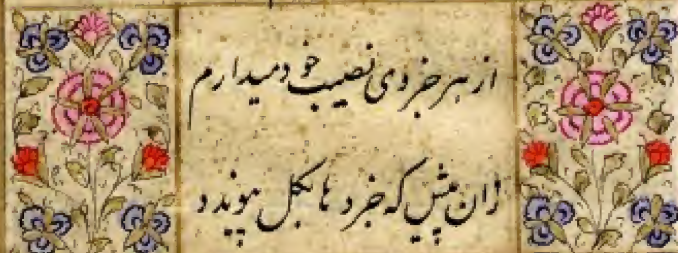 از هر جزوی نصیب خود میدارم
زان پیش که جزو ها بکل پیوندد